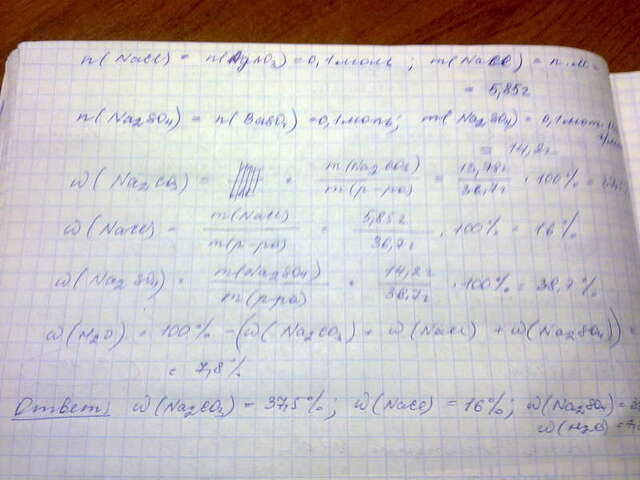 n(NaCl) = n(AgNO₃) = 0,1 моль ; m(NaCl) = n·M =
= 5,85г
n(Na₂SO₄) = n(BaSO₄) = 0,1 моль; m(Na₂SO₄) = 0,1моль
= 14,2г
ω(Na₂CO₃) = m(Na₂CO₃) / m(р-ра) = 13,78г / 36,7г · 100% =
ω(NaCl) = m(NaCl) / m(р-ра) = 5,85г / 36,7г · 100% = 16%
ω(Na₂SO₄) = m(Na₂SO₄) / m(р-ра) = 14,2г / 36,7г · 100% = 38,7%
ω(H₂O) = 100% - (ω(Na₂CO₃) + ω(NaCl) + ω(Na₂SO₄)) =
= 7,8%
Ответ: ω(Na₂CO₃) = 37,5%; ω(NaCl) = 16%; ω(Na₂SO₄) =
ω(H₂O) = 7,